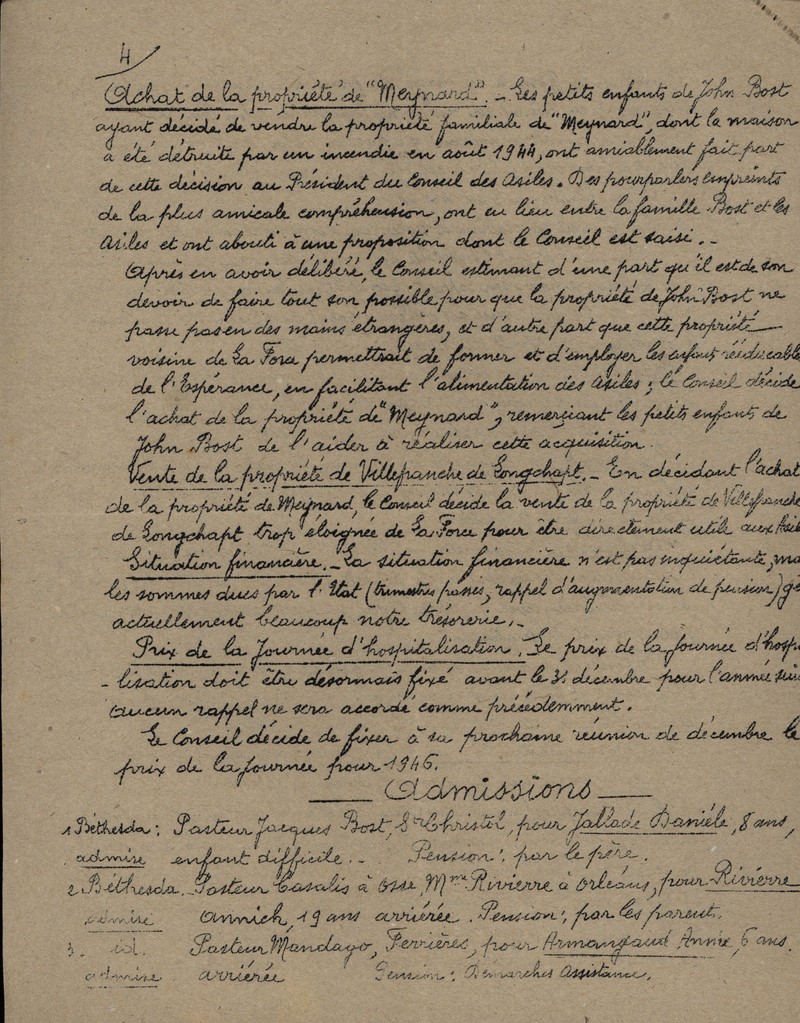 4
Achat de la propriété de "Meynard". - Les petits enfants de John Bost
ayant décidé de vendre la propriété familiale de "Meynard", dont la maison
a été détruite par un incendie en août 1944, ont amiablement fait part
de cette décision au Président du Conseil des Asiles. Des pourparlers empreints
de la plus amicale compréhension, ont eu lieu entre la famille Bost et les
Asiles et ont abouti à une proposition dont le Conseil est saisi. -
Après en avoir délibéré, le Conseil estimant d'une part qu'il est de son
devoir de faire tout son possible pour que la propriété de John Bost ne
passe pas en des mains étrangères, et d'autre part que cette propriété
voisine de La Force permettrait de former et d'employer les enfant rééducable
de l'Espérance, en facilitant l'alimentation des Asiles ; le Conseil décide
l'achat de la propriété de "Meynard", remerçiant les petits enfants de
John Bost de l'aider à réaliser cette acquisition.
Vente de la propriété de Villefranche de Longchapt. - En décidant l'achat
de la propriété de Meynard, le Conseil décide la vente de la propriété de Villefranche
de Longchapt trop éloignée de La Force pour être directement utile aux Asil
Situation financière. - La situation financière n'est pas inquiétante, ma
les sommes dues par l'Etat (trimestres passés, rappel d'augmentation de pension) gê
actuellement beaucoup notre trésorerie. -
Prix de la Journée d'hospitalisation. Le prix de la journée d'hosp
- lisation doit être désormais fixé avant le 31 décembre pour l'année sui
aucun rappel ne sera accordé comme précédemment.
Le Conseil décide de fixer à sa prochaine réunion de décembre le
prix de la journée pour 1946.
Admissions
1 Béthesda : Pasteur Jacques Bost, St Christol, pour Jallade Danièle, 8 ans,
admise enfant difficile. - Pension : par le père.
2 Béthesda. Pasteur Casalis à Osse, Mme Rivierre à Orléans, pour Rivierre
admise Annick, 19 ans arriérée. Pension : par les parent.
3. id. Pasteur Mandago, Ferrières, pour Armangaud Annie, 6 ans.
admise arriérée Pension : Démarches Assistance.